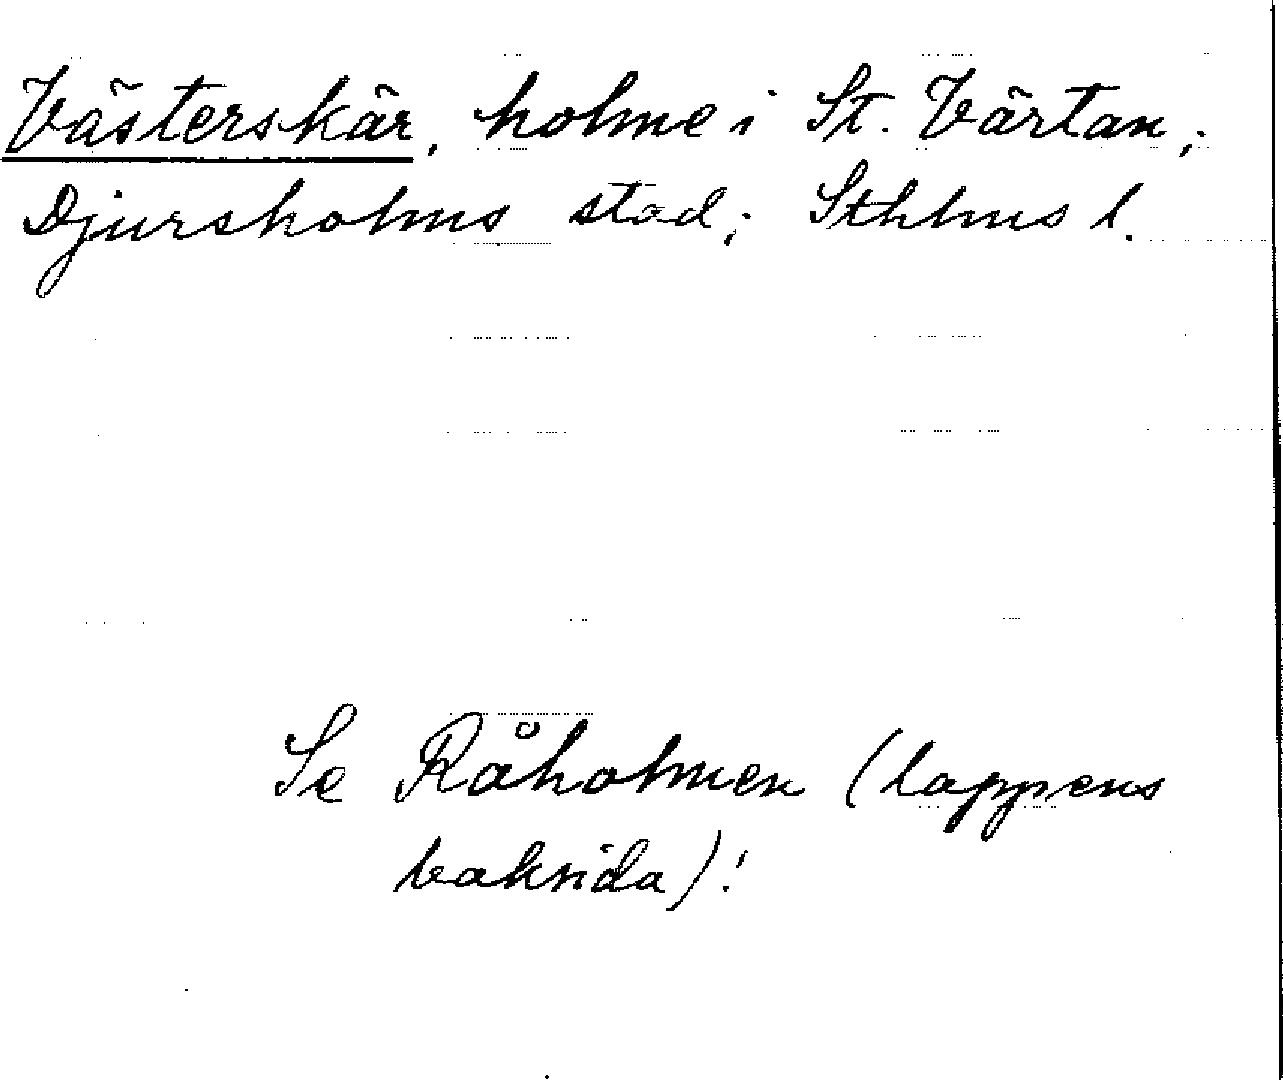 Västerskär, holme i St. Värtan,;
Djursholms stad,; Sthlms l.
Se Råholmen (lappens
baksida)!